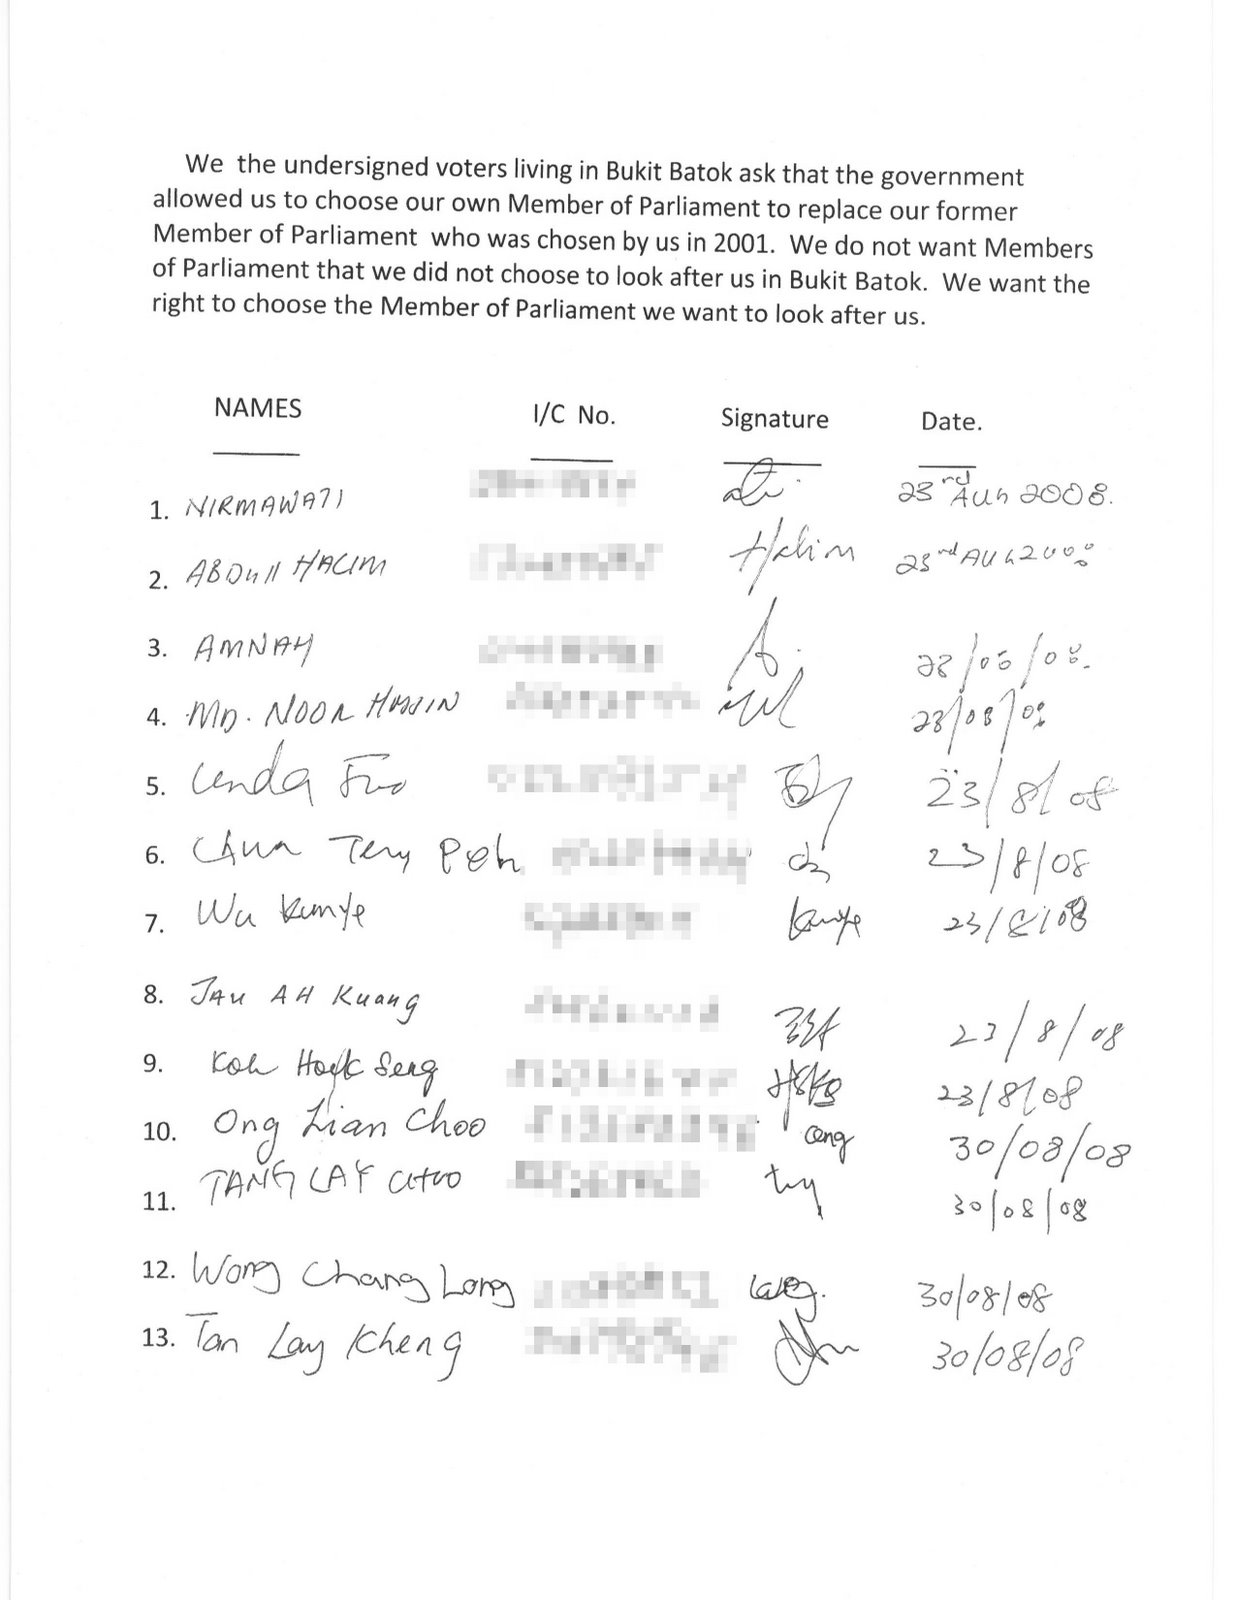 We the undersigned voters living in Bukit Batok ask that the government
allowed us to choose our own Member of Parliament to replace our former
Member of Parliament who was chosen by us in 2001. We do not want Members
of Parliament that we did not choose to look after us in Bukit Batok. We want the
right to choose the Member of Parliament we want to look after us.
NAMES I/C No. Signature Date.
1. NIRMAWATI 23rd AUG 2008.
2. ABDULL HALIM Halim 23rd AUG 2008
3. AMNAH A. 23/08/08.
4. MD. NOOR HUSSIN 23/08/08
5. 23/8/08
6. Chua Teng Poh 23/8/08
7. Wu Kunye Kunye 23/8/08
8. JAU AH Kuang 23/8/08
9. Koh Hock Seng 23/8/08
10. Ong Lian Choo ong 30/08/08
11. TANG LAY CHOO 30/08/08
12. Wong Chang Long 30/08/08
13. Tan Lay Kheng 30/08/08